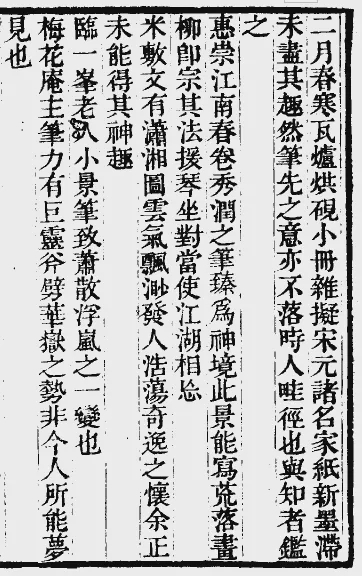 二月春寒瓦爐烘硯小冊雜擬宋元諸名家紙新墨滯
未盡其趣然筆先之意亦不落時人畦徑也與知者鑑
之
惠崇江南春卷秀潤之筆臻為神境此景能寫荒落畫
柳卽宗其法援琴坐對當使江湖相忘
米敷文有瀟湘圖雲氣飄渺發人浩蕩奇逸之懷余正
未能得其神趣
臨一峯老人小景筆致蕭散浮嵐之一變也
梅花庵主筆力有巨靈斧劈華嶽之勢非今人所能夢
見也